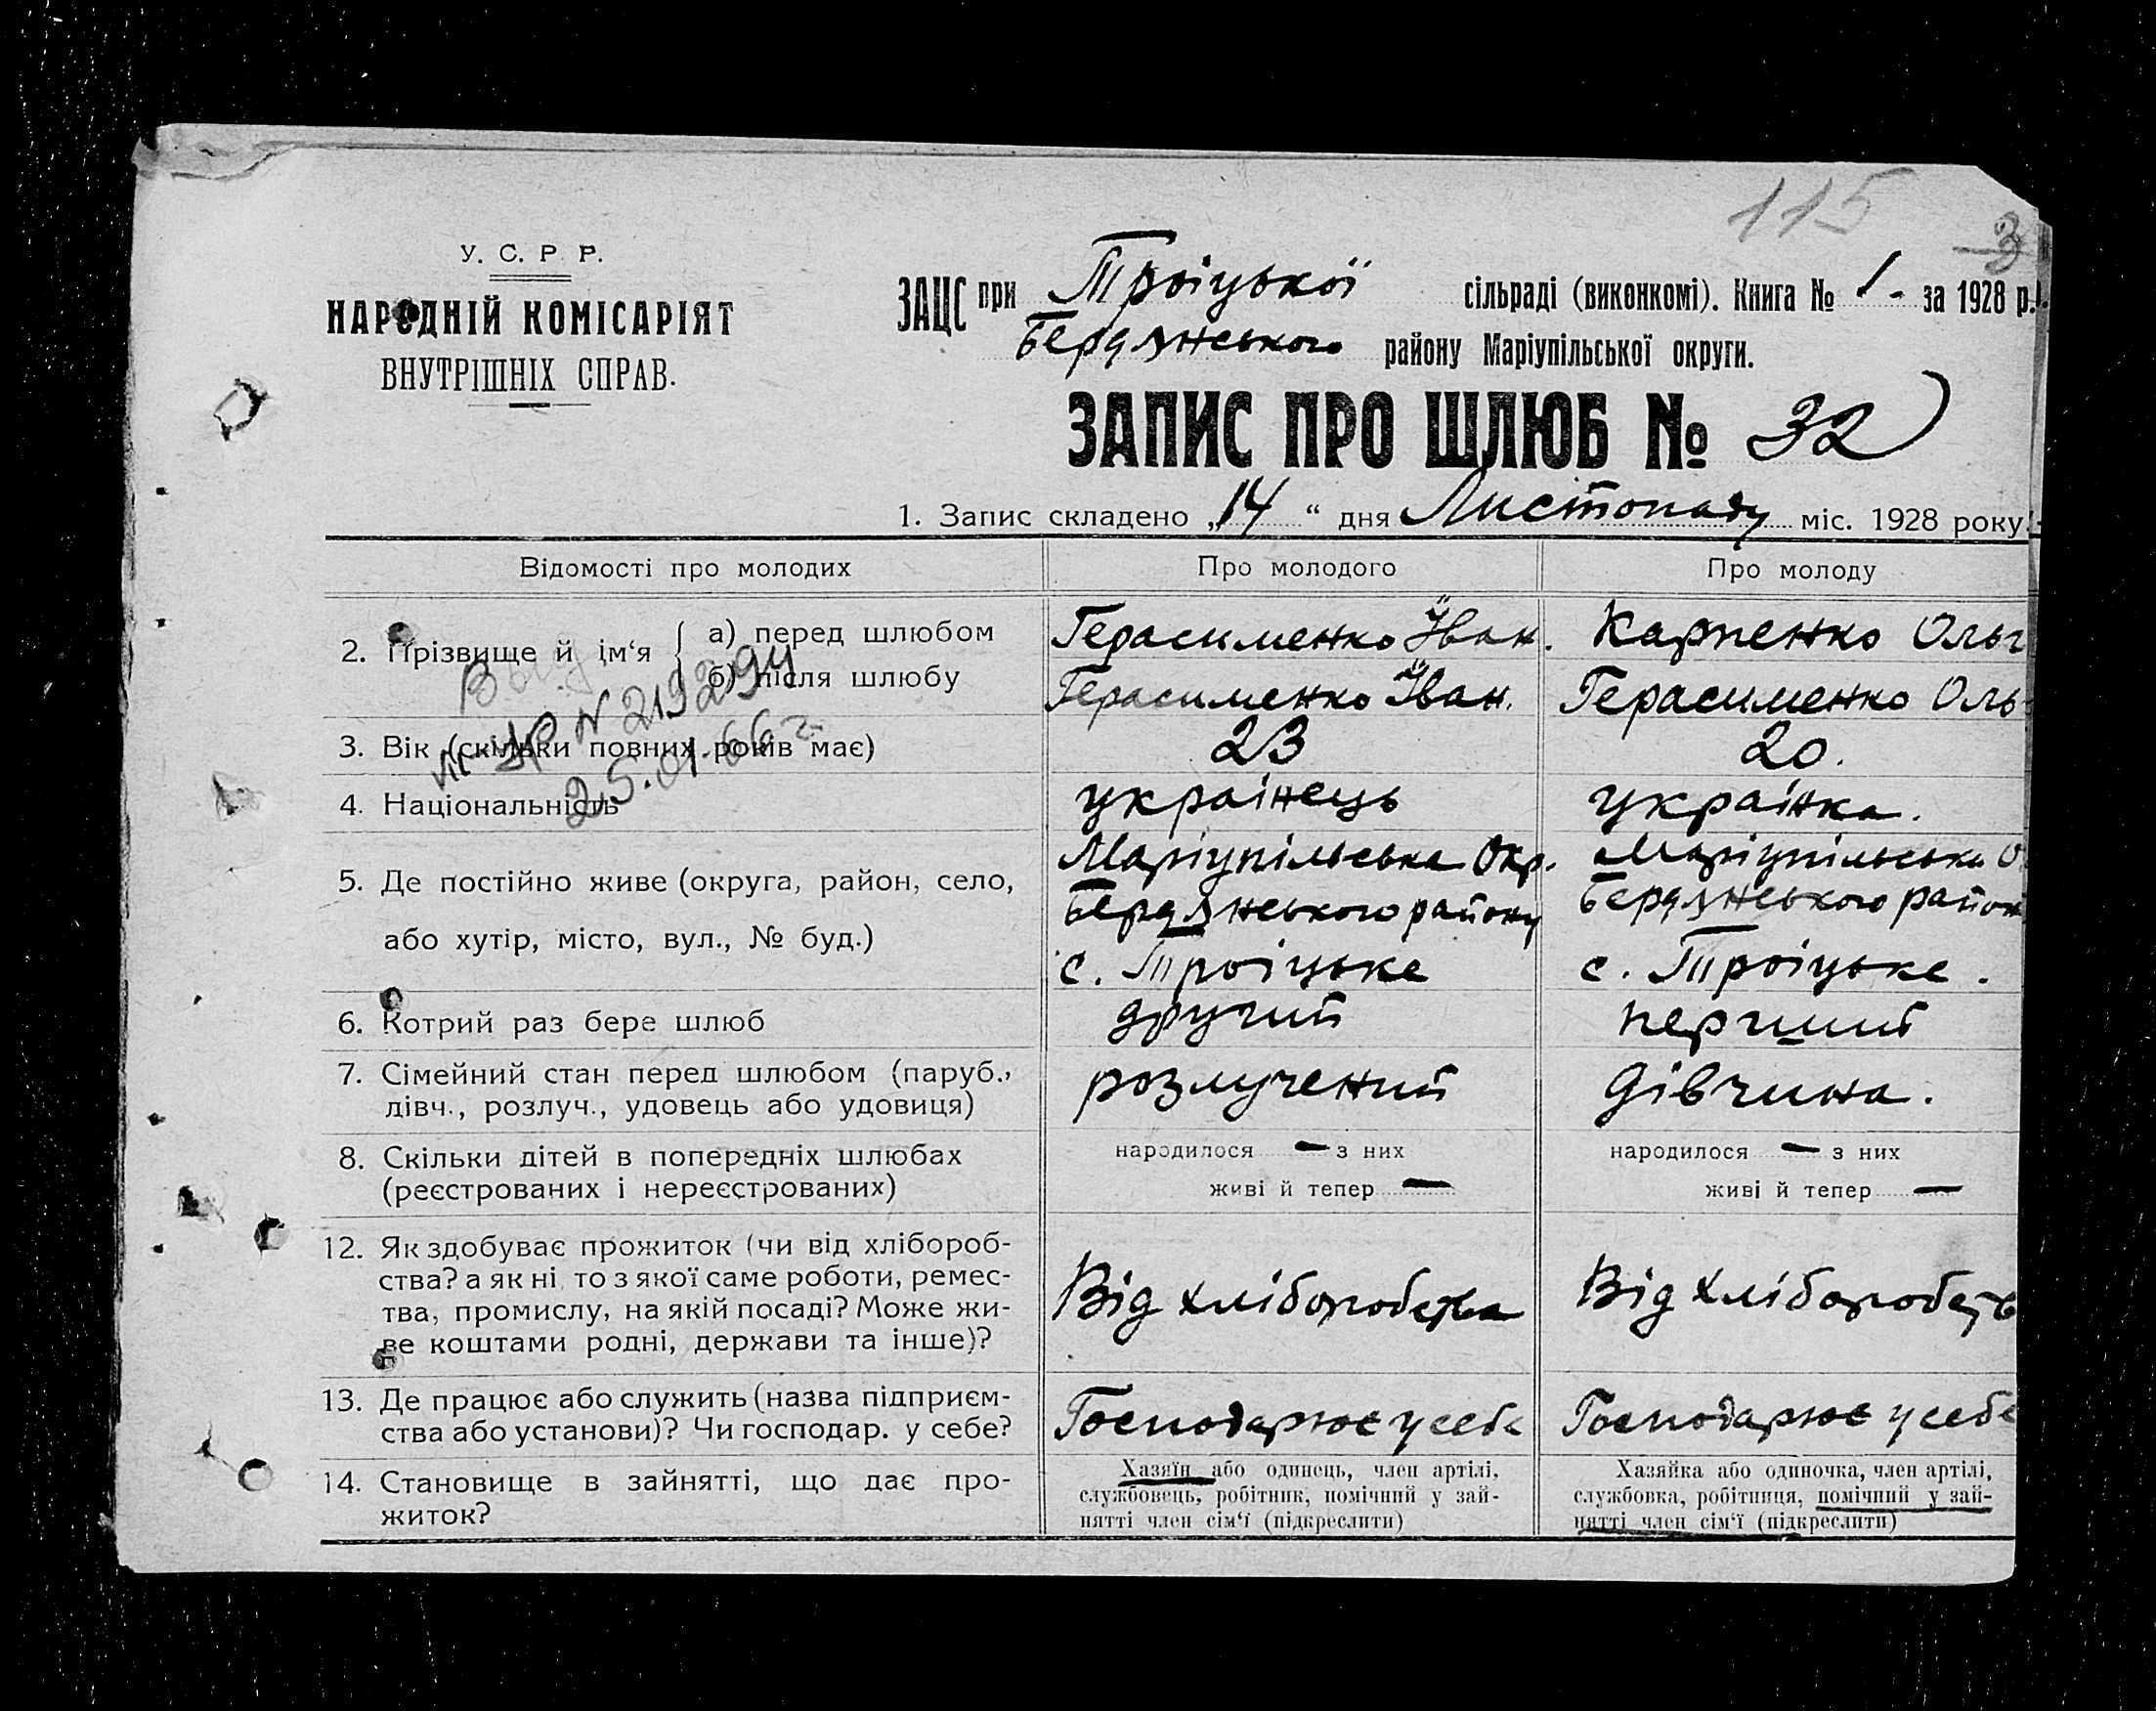 115
3
У. С. Р. Р.
НАРОДНІЙ КОМІСАРІЯТ
ВНУТРІШНІХ СПРАВ.
ЗАЦС при Троіцької сільраді (виконкомі). Книга № 1 - за 1928 р.
Бердянського району Маріупільської округи.
ЗАПИС ПРО ШЛЮБ № 32
1. Запис складено „14“ дня Листопаду міс. 1928 року.
Відомості про молодих
Про молодого
Про молоду
2. Прізвище й ім‘я
а) перед шлюбом
Герасименко Іван.
Карпенко Ольг
б) після шлюбу
Герасименко Іван.
Герасименко Оль
N 219294
25.01.66 г.
3. Вік (скільки повних років має)
23
20.
4. Національність
украінець
украінка.
5. Де постійно живе (округа, район, село,
або хутір, місто, вул., № буд.)
Маріупільська Окр.
Бердянського району
с. Троіцьке
Маріупільська О
Бердянського район
с. Троіцьке.
6. Котрий раз бере шлюб
другий
перший
7. Сімейний стан перед шлюбом (паруб.,
дівч., розлуч., удовець або удовиця)
розлучений
дівчина.
8. Скільки дітей в попередніх шлюбах
(реєстрованих і нереєстрованих)
народилося — з них
живі й тепер —
народилося — з них
живі й тепер —
12. Як здобуває прожиток (чи від хлібороб-
ства? а як ні, то з якої саме роботи, ремес-
тва, промислу, на якій посаді? Може жи-
ве коштами родні, держави та інше)?
Від хліборобства
Від хліборобств
13. Де працює або служить (назва підприєм-
ства або установи)? Чи господар. у себе?
Господарює у себе
Господарює у себе
14. Становище в зайнятті, що дає про-
житок?
Хазяїн або одинець, член артілі,
службовець, робітник, помічний у зай-
нятті член сім‘ї (підкреслити)
Хазяйка або одиночка, член артілі,
службовка, робітниця, помічний у зай-
нятті член сім‘ї (підкреслити)